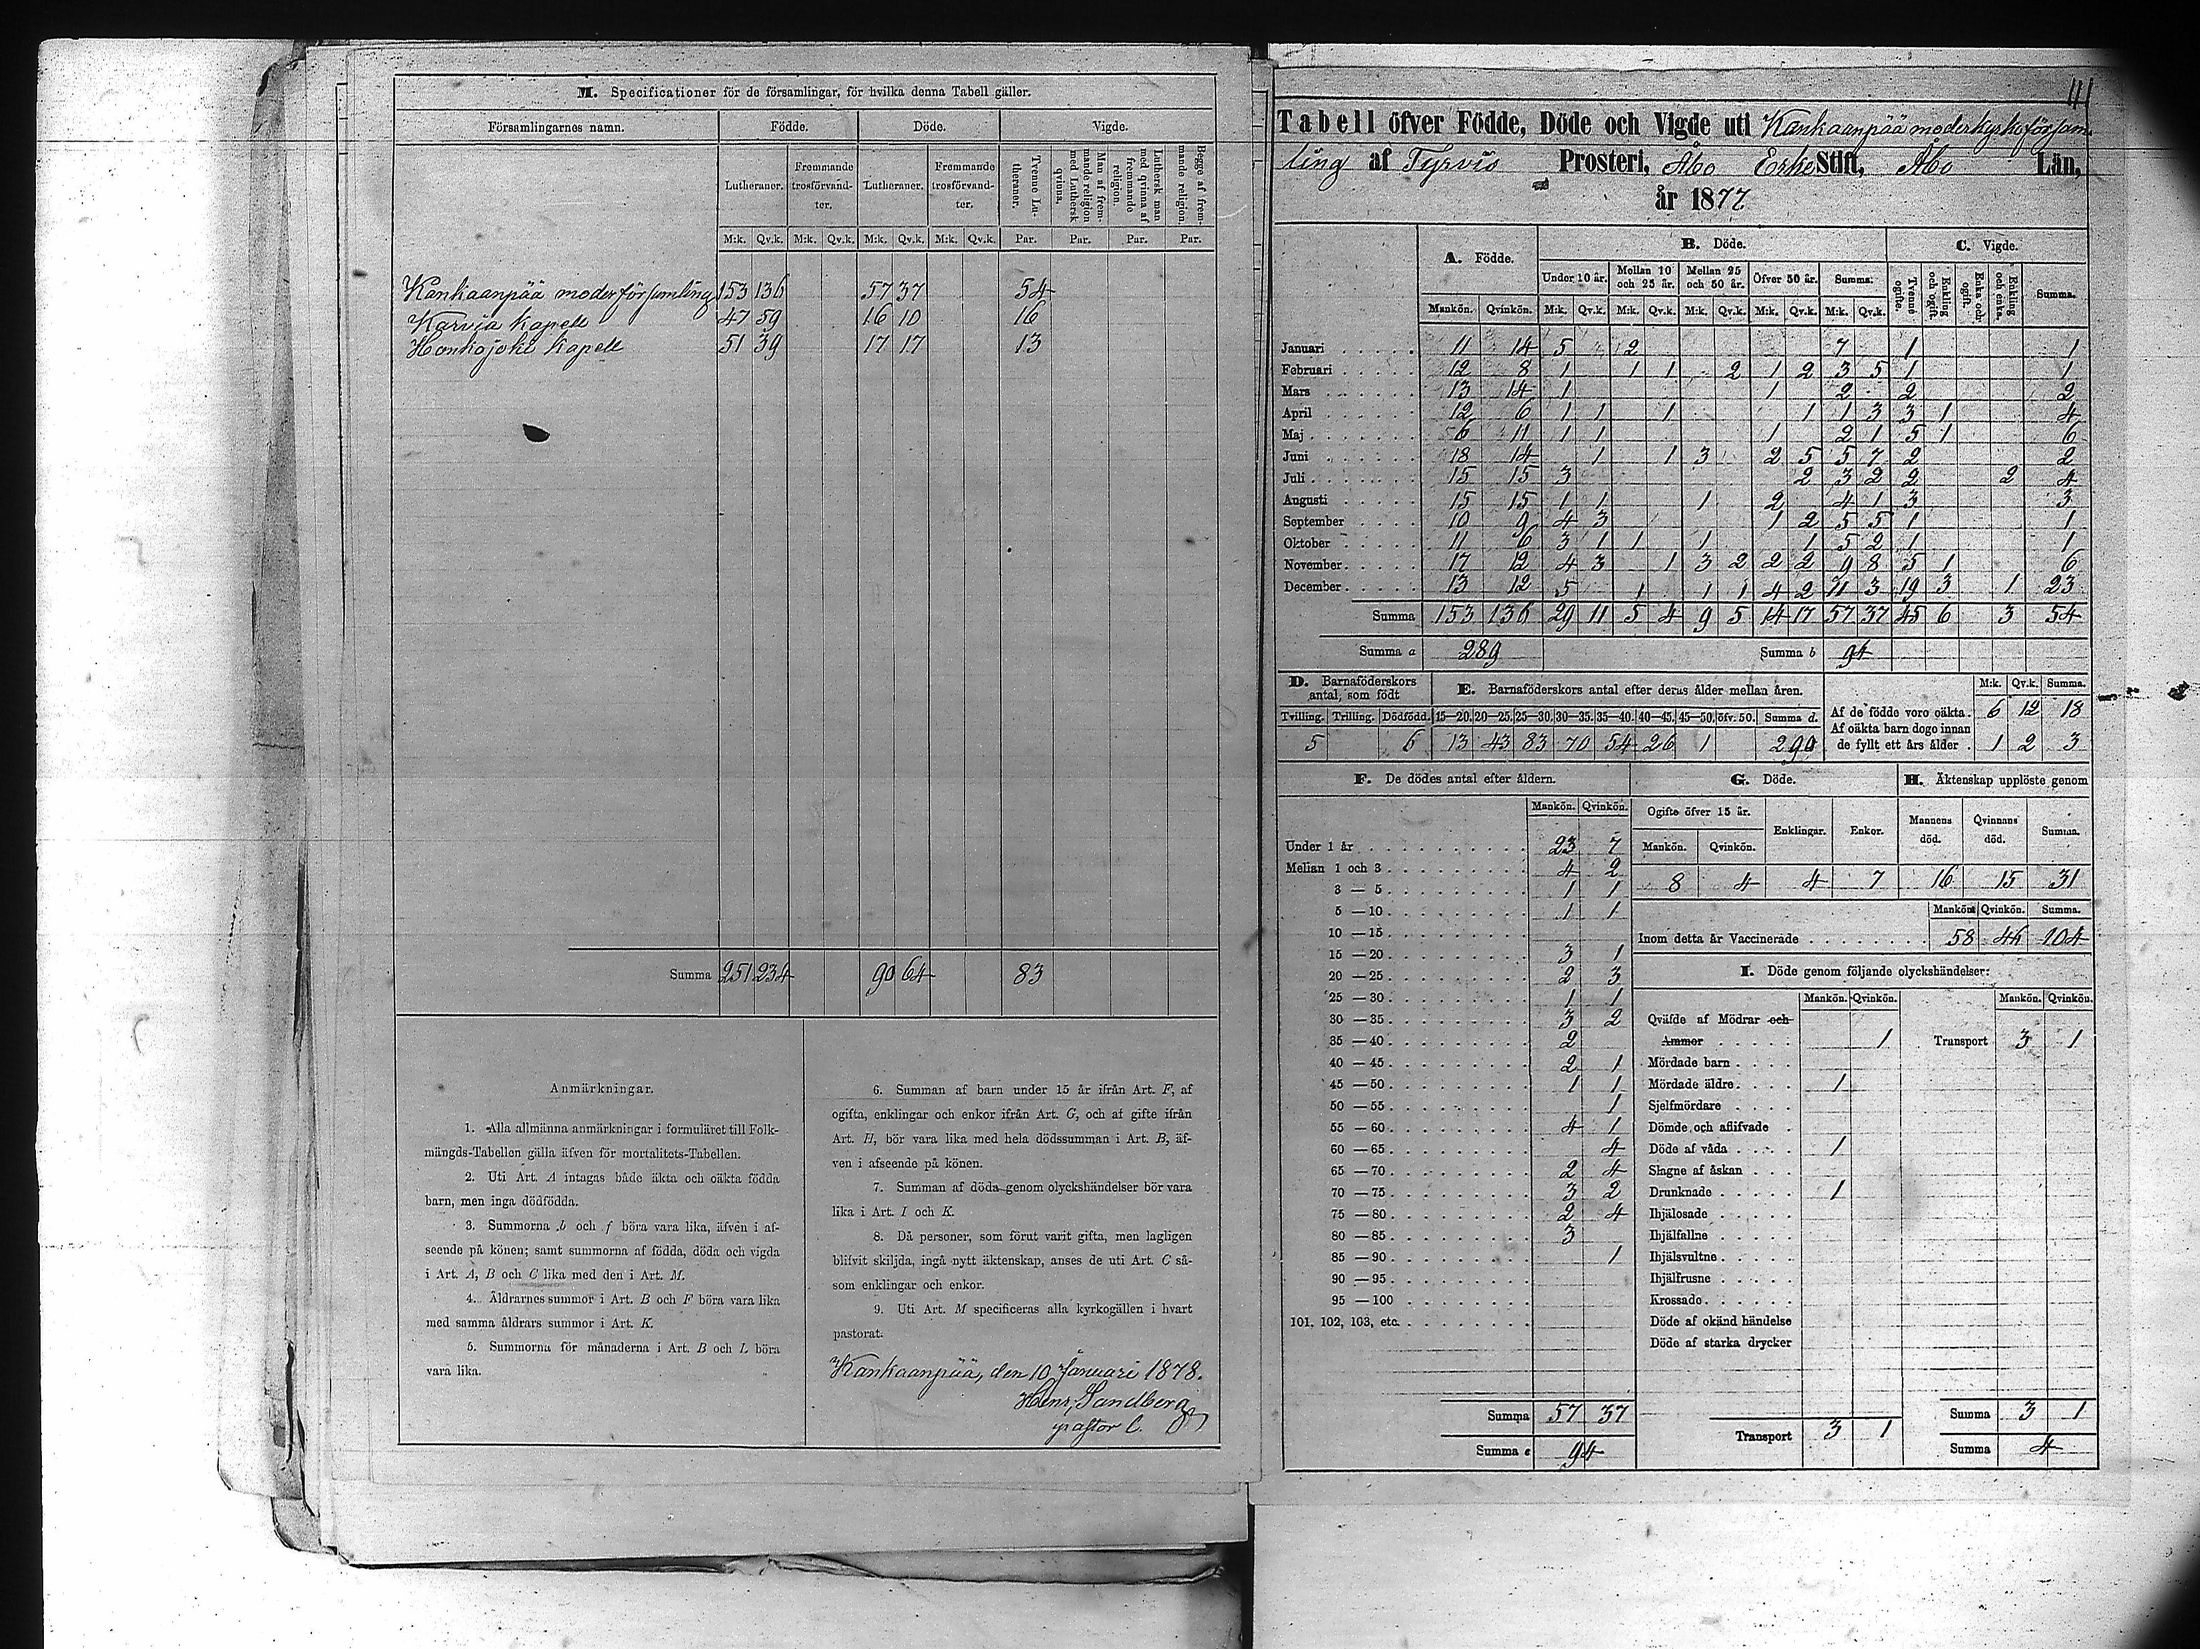 M. Specificationer för de församlingar, för hvilka denna Tabell gäller.
Församlingarnes namn. Födde. Döde. Vigde.
Lutheraner. Fremmande trosförvandter. Lutheraner. Fremmande trosförvandter. Tvenne Lutheraner. Man af fremmande religion med Luthersk qvinna. Luthersk man med qvinna af fremmande religion. Begge af fremmande religion.
M:k. Qv.k. M:k. Qv.k. M:k. Qv.k. M:k. Qv.k. Par. Par. Par. Par.
Kankaanpää moderförsamling 153 136 57 37 54
Karvia kapell 47 59 16 10 16
Honkajoki kapell 51 39 17 17 13
Summa 251 234 90 64 83
Anmärkningar.
1. Alla allmänna anmärkningar i formuläret till Folk-
mängds-Tabellen gälla äfven för mortalitets-Tabellen.
2. Uti Art. A intagas både äkta och oäkta födda
barn, men inga dödfödda.
3. Summorna b och f böra vara lika, äfven i af-
seende på könen; samt summorna af födda, döda och vigda
i Art. A, B och C lika med den i Art. M.
4. Åldrarnes summor i Art. B och F böra vara lika
med samma åldrars summor i Art. K.
5. Summorna för månaderna i Art. B och L böra
vara lika.
6. Summan af barn under 15 år ifrån Art. F, af
ogifta, enklingar och enkor ifrån Art. G, och af gifte ifrån
Art. H, bör vara lika med hela dödssumman i Art. B, äf-
ven i afseende på könen.
7. Summan af döda genom olyckshändelser bör vara
lika i Art. I och K.
8. Då personer, som förut varit gifta, men lagligen
blifvit skiljda, ingå nytt äktenskap, anses de uti Art. C så-
som enklingar och enkor.
9. Uti Art. M specificeras alla kyrkogällen i hvart
pastorat.
Kankaanpää, den 10 Januari 1878.
Henr. Sandberg
pastor C.
111
Tabell öfver Födde, Döde och Vigde uti Kankaanpää moderkyrkoförsam-
ling af Tyrvis Prosteri, Åbo Erke Stift, Åbo Län,
år 1877
A. Födde. B. Döde. C. Vigde.
Under 10 år. Mellan 10 och 25 år. Mellan 25 och 50 år. Öfver 50 år. Summa. Tvenne ogifte. Enkling och ogift. Enka och ogift. Enkling och enka. Summa.
Mankön. Qvinkön. M:k. Qv.k. M:k. Qv.k. M:k. Qv.k. M:k. Qv.k. M:k. Qv.k.
Januari 11 14 5 2 7 1 1
Februari 12 8 1 1 1 2 1 2 3 5 1 1
Mars 13 14 1 1 2 2 2
April 12 6 1 1 1 1 1 3 3 1 4
Maj 6 11 1 1 1 2 1 5 1 6
Juni 18 14 1 1 3 2 5 5 7 2 2
Juli 15 15 3 2 3 2 2 2 4
Augusti 15 15 1 1 1 2 4 1 3 3
September 10 9 4 3 1 2 5 5 1 1
Oktober 11 6 3 1 1 1 1 5 2 1 1
November 17 12 4 3 1 3 2 2 2 9 8 5 1 6
December 13 12 5 1 1 1 4 2 11 3 19 3 1 23
Summa 153 136 29 11 5 4 9 5 14 17 57 37 45 6 3 54
Summa a 289 Summa b 94
D. Barnaföderskors antal, som födt
Tvilling. Trilling. Dödfödd.
5 6
E. Barnaföderskors antal efter deras ålder mellan åren.
15—20. 20—25. 25—30. 30—35. 35—40. 40—45. 45—50. öfv. 50. Summa d.
13 43 83 70 54 26 1 290
M:k. Qv.k. Summa.
Af de födde voro oäkta. 6 12 18
Af oäkta barn dogo innan
de fyllt ett års ålder 1 2 3
F. De dödes antal efter åldern.
Mankön. Qvinkön.
Under 1 år 23 7
Mellan 1 och 3 4 2
3 — 5 1 1
5 — 10 1 1
10 — 15
15 — 20 3 1
20 — 25 2 3
25 — 30 1 1
30 — 35 3 2
35 — 40 2
40 — 45 2 1
45 — 50 1 1
50 — 55 1
55 — 60 4 1
60 — 65 4
65 — 70 2 4
70 — 75 3 2
75 — 80 2 4
80 — 85 3
85 — 90 1
90 — 95
95 — 100
101, 102, 103, etc.
Summa 57 37
Summa e 94
G. Döde.
Ogifte öfver 15 år. Enklingar. Enkor.
Mankön. Qvinkön.
8 4 4 7
H. Äktenskap upplöste genom
Mannens död. Qvinnans död. Summa.
16 15 31
Mankön. Qvinkön. Summa.
Inom detta år Vaccinerade 58 46 104
I. Döde genom följande olyckshändelser:
Mankön. Qvinkön. Mankön. Qvinkön.
Qväfde af Mödrar och
Ammor 1 Transport 3 1
Mördade barn
Mördade äldre 1
Sjelfmördare
Dömde och aflifvade
Döde af våda 1
Slagne af åskan
Drunknade 1
Ihjälosade
Ihjälfallne
Ihjälsvultne
Ihjälfrusne
Krossade
Döde af okänd händelse
Döde af starka drycker
Transport 3 1
Summa 3 1
Summa 4